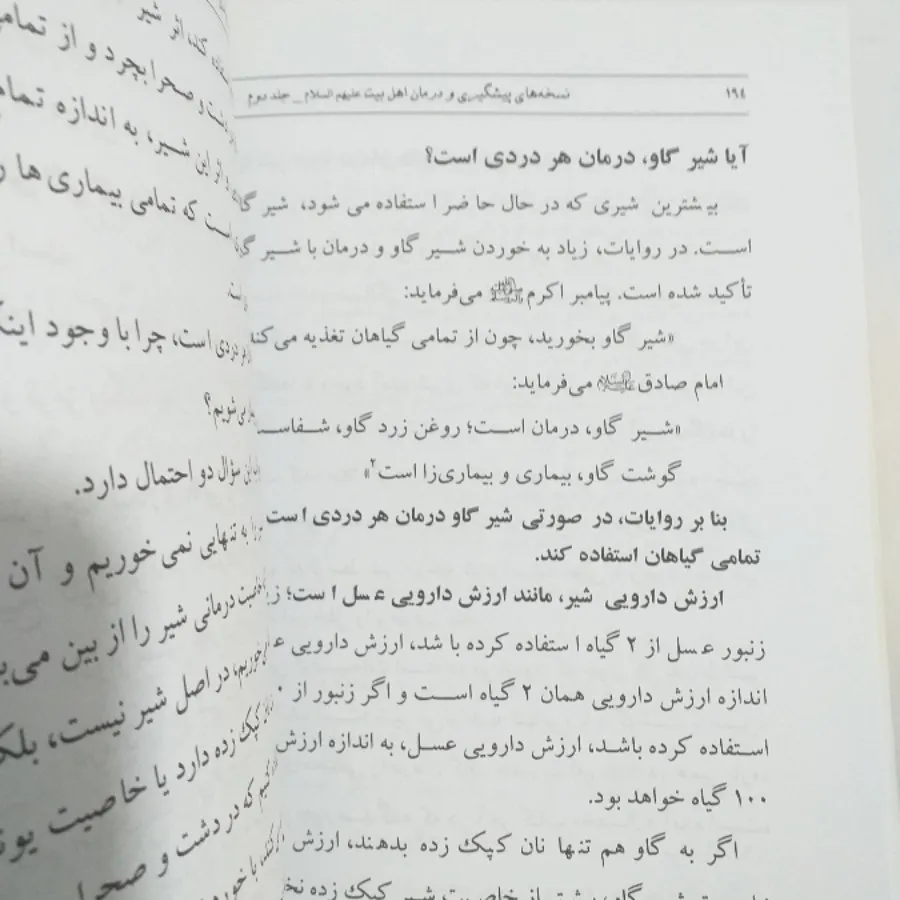 ۱۹٤ نسخه‌های پیشگیری و درمان اهل بیت علیهم السلام _ جلد دوم
آیا شیر گاو، درمان هر دردی است؟
بیشترین شیری که در حال حاضر استفاده می شود، شیر
است. در روایات، زیاد به خوردن شیر گاو و درمان با شیر
تأکید شده است. پیامبر اکرم ﷺ می‌فرماید:
«شیر گاو بخورید، چون از تمامی گیاهان تغذیه می‌کند
امام صادق می‌فرماید:
«شیر گاو، درمان است؛ روغن زرد گاو، شفاست
گوشت گاو، بیماری و بیماری‌زا است۲»
بنا بر روایات، در صورتی شیر گاو درمان هر دردی است
تمامی گیاهان استفاده کند.
ارزش دارویی شیر، مانند ارزش دارویی عسل است؛
زنبور عسل از ۲ گیاه استفاده کرده باشد، ارزش دارویی
اندازه ارزش دارویی همان ۲ گیاه است و اگر زنبور از
استفاده کرده باشد، ارزش دارویی عسل، به اندازه ارزش
۱۰۰ گیاه خواهد بود.
اگر به گاو هم تنها نان کپک زده بدهند، ارزش
شیر
و صحرا بچرد و از
این شیر، به اندازه
است که تمامی بیماری ها
دردی است، چرا با وجود
می‌شویم؟
سؤال دو احتمال دارد.
به تنهایی نمی‌خوریم و آن
خاصیت درمانی شیر را از بین
در اصل شیر نیست،
کپک زده دارد یا خاصیت
که در دشت و